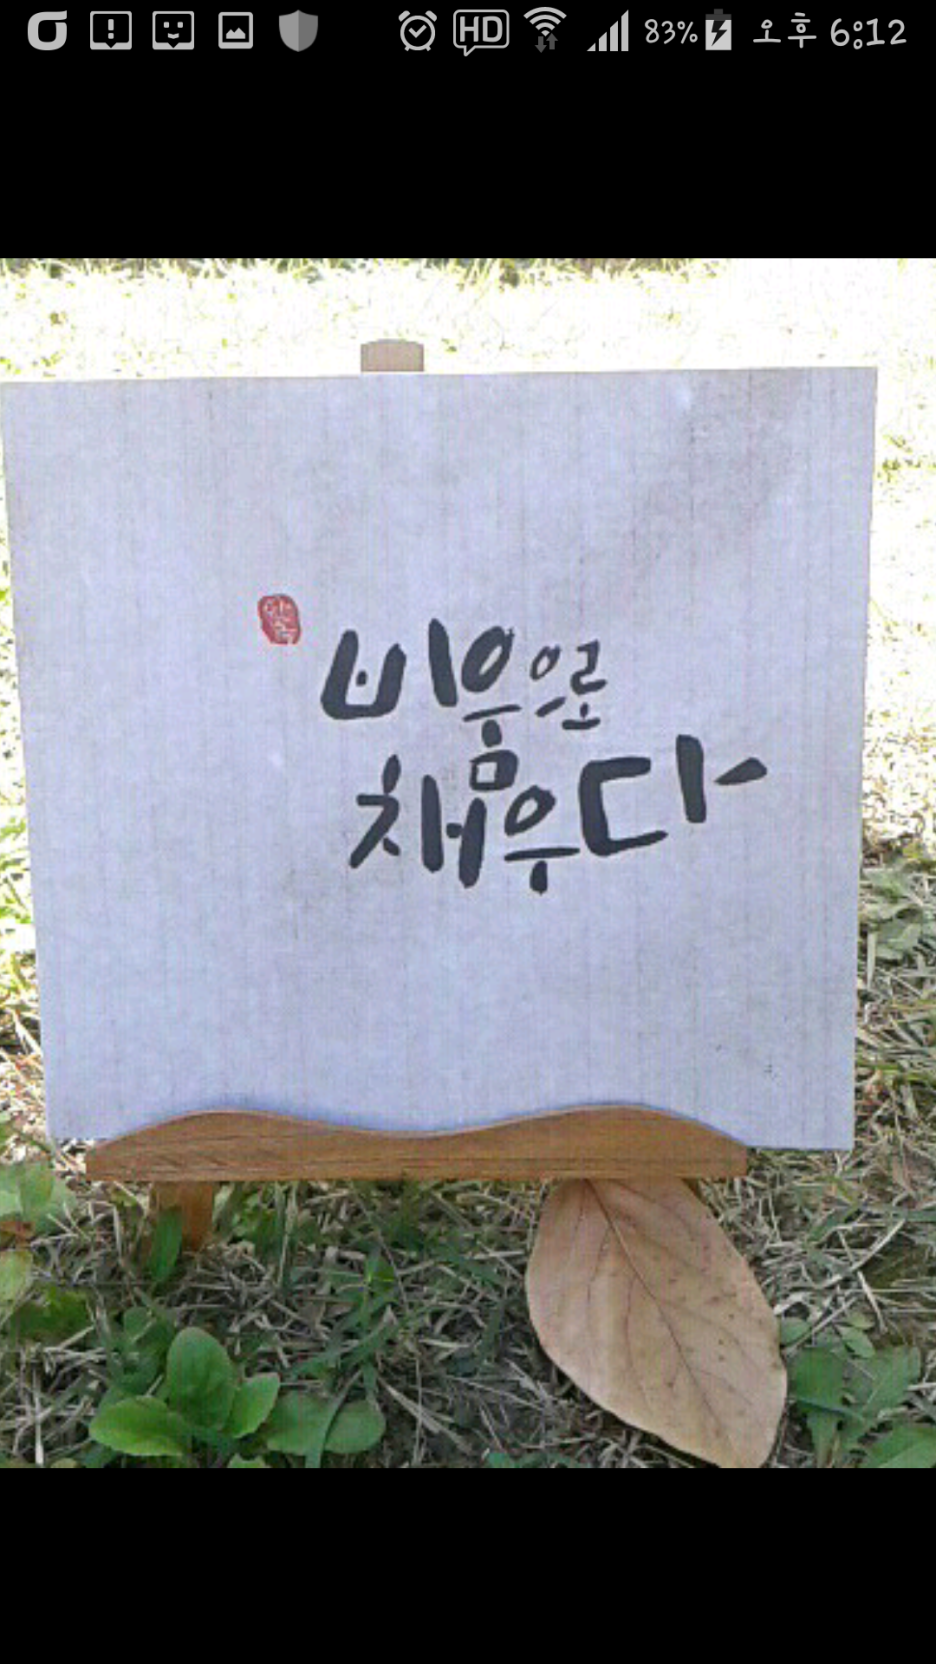 HD 83% 오후 6:12
비움으로
채우다